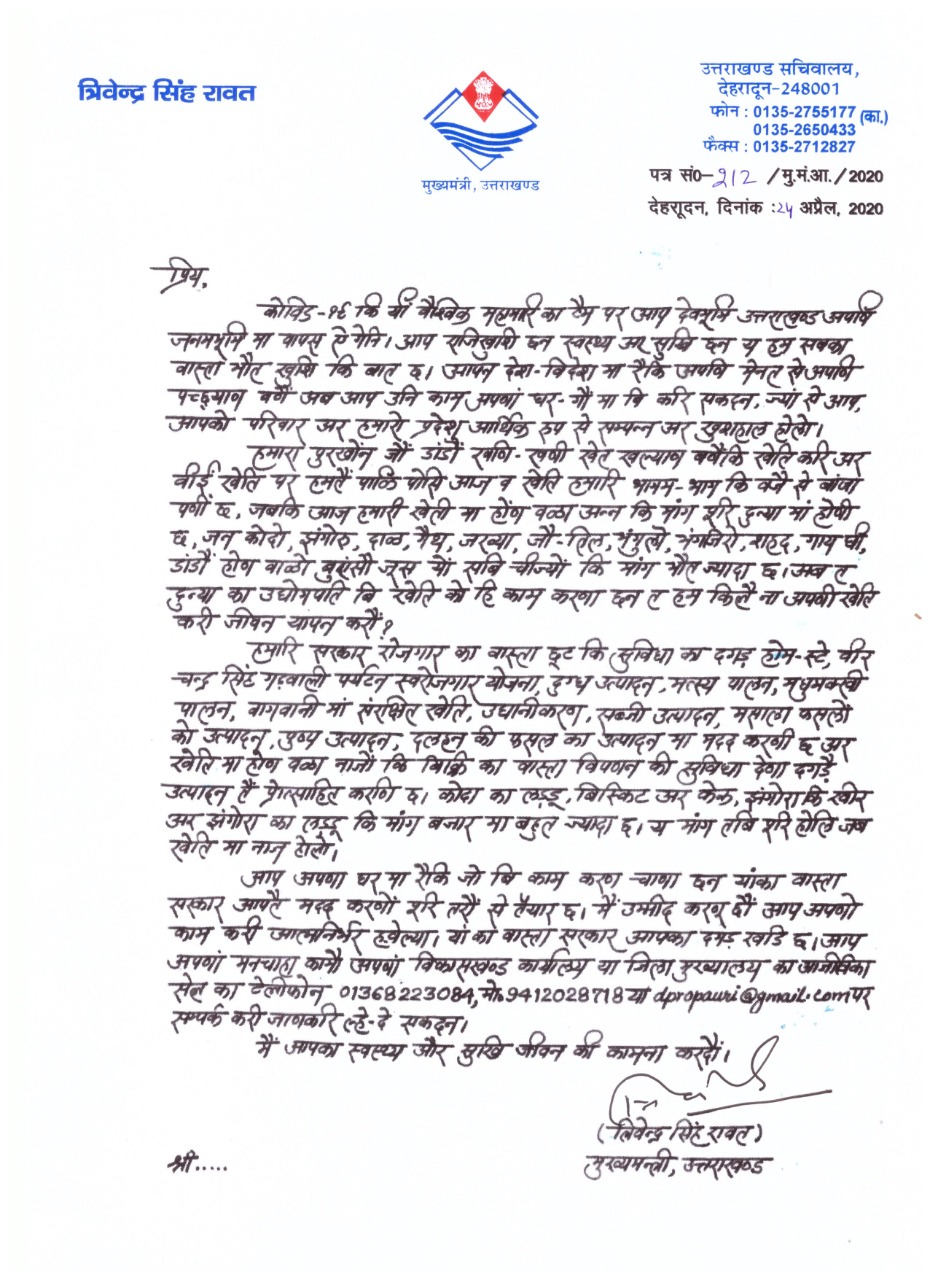 त्रिवेन्द्र सिंह रावत
मुख्यमंत्री, उत्तराखण्ड
उत्तराखण्ड सचिवालय,
देहरादून-248001
फोन : 0135-2755177 (का.)
0135-2650433
फैक्स : 0135-2712827
पत्र सं0-212 /मु.मं.आ./2020
देहरादून, दिनांक :24 अप्रैल, 2020
प्रिय,
कोविड-१९ कि यीं वैश्विक महामारि का टैम पर आप देवभूमि उत्तराखण्ड अपणि
जनमभूमि मा वापस ऐ गेनि। आप राजिखुशि छन स्वस्थ्य अर सुखि छन य हम सबका
वास्ता भौत खुशि कि बात छ। आपन देश-विदेश मा रैकि अपणि मेनत से अपणि
पच्छ्याण बणैं अब आप उनि काम अपणां घर-गौं मा बि करि सकदन, ज्यां से आप,
आपको परिवार अर हमारो प्रदेश आर्थिक रुप से सम्पन्न अर खुशहाल होलो।
हमारा पुरखोंन जौं डांडौं खणि-खणी खेत खल्याण बणैंकि खेति करि अर
वीईं खेति पर हमतैं पालि पोसि आज व खेति हमारि भागम-भाग कि वजै से बांजा
पणीं छ, जबकि आज हमारी खेती मा होंण वळा अन्न कि मांग पूरि दुन्या मां होणी
छ, जन कोदो, झंगोरु, दाळ, गैथ, जख्या, जौ-तिल, भंगुलो, भंगजिरो, शहद, गाय घी,
डांडौं होण वाळो बुरांसौ जूस यों सबि चीज्यों कि मांग भौत ज्यादा छ। अब त
दुन्या का उद्योगपति बि खेति को हि काम करणा छन त हम किलै ना अपणी खेति
करी जीवन यापन करौं?
हमारि सरकार रोजगार का वास्ता छूट कि सुविधा का दगड़ होम-स्टे, वीर
चन्द्र सिंह गढ़वाली पर्यटन स्वरोजगार योजना, दुग्ध उत्पादन, मत्स्य पालन, मधुमक्खी
पालन, बागवानी मां संरक्षित खेति, उद्यानीकरण, सब्जी उत्पादन, मसाला फसलों
को उत्पादन, पुष्प उत्पादन, दलहन की फसल का उत्पादन मा मदद करणी छ अर
खेति मा होण वळा नाजौ कि बिक्रि का वास्ता विपणन की सुविधा देणा दगड़ै
उत्पादन तैं प्रोत्साहित करणि छ। कोदा का लड्डू, बिस्किट अर केक, झंगोरा कि खीर
अर झंगोरा का लड्डू कि मांग बजार मा बहुत ज्यादा छ। य मांग तबि पूरि होलि जब
खेति मा नाज होलो।
आप अपणा घर मा रैकि जो बि काम करण चाणा छन यांका वास्ता
सरकार आपतै मदद करणौं पूरि तरौं से तैयार छ। मैं उम्मीद करणू छौं आप अपणो
काम करी आत्मनिर्भर ह्वेल्या। यां का वास्ता सरकार आपका दगड़ खड़ि छ। आप
अपणां मनचाहा कामौ अपणां विकासखण्ड कार्यालय या जिला मुख्यालय का आजीविका
सेल का टेलीफोन 01368223084, मो० 9412028718 या dpropauri@gmail.com पर
सम्पर्क करी जाणकरि ल्हे-दे सकदन।
मैं आपका स्वस्थ्य और सुखि जीवन की कामना करदौं।
(त्रिवेन्द्र सिंह रावत)
मुख्यमन्त्री, उत्तराखण्ड
श्री.....